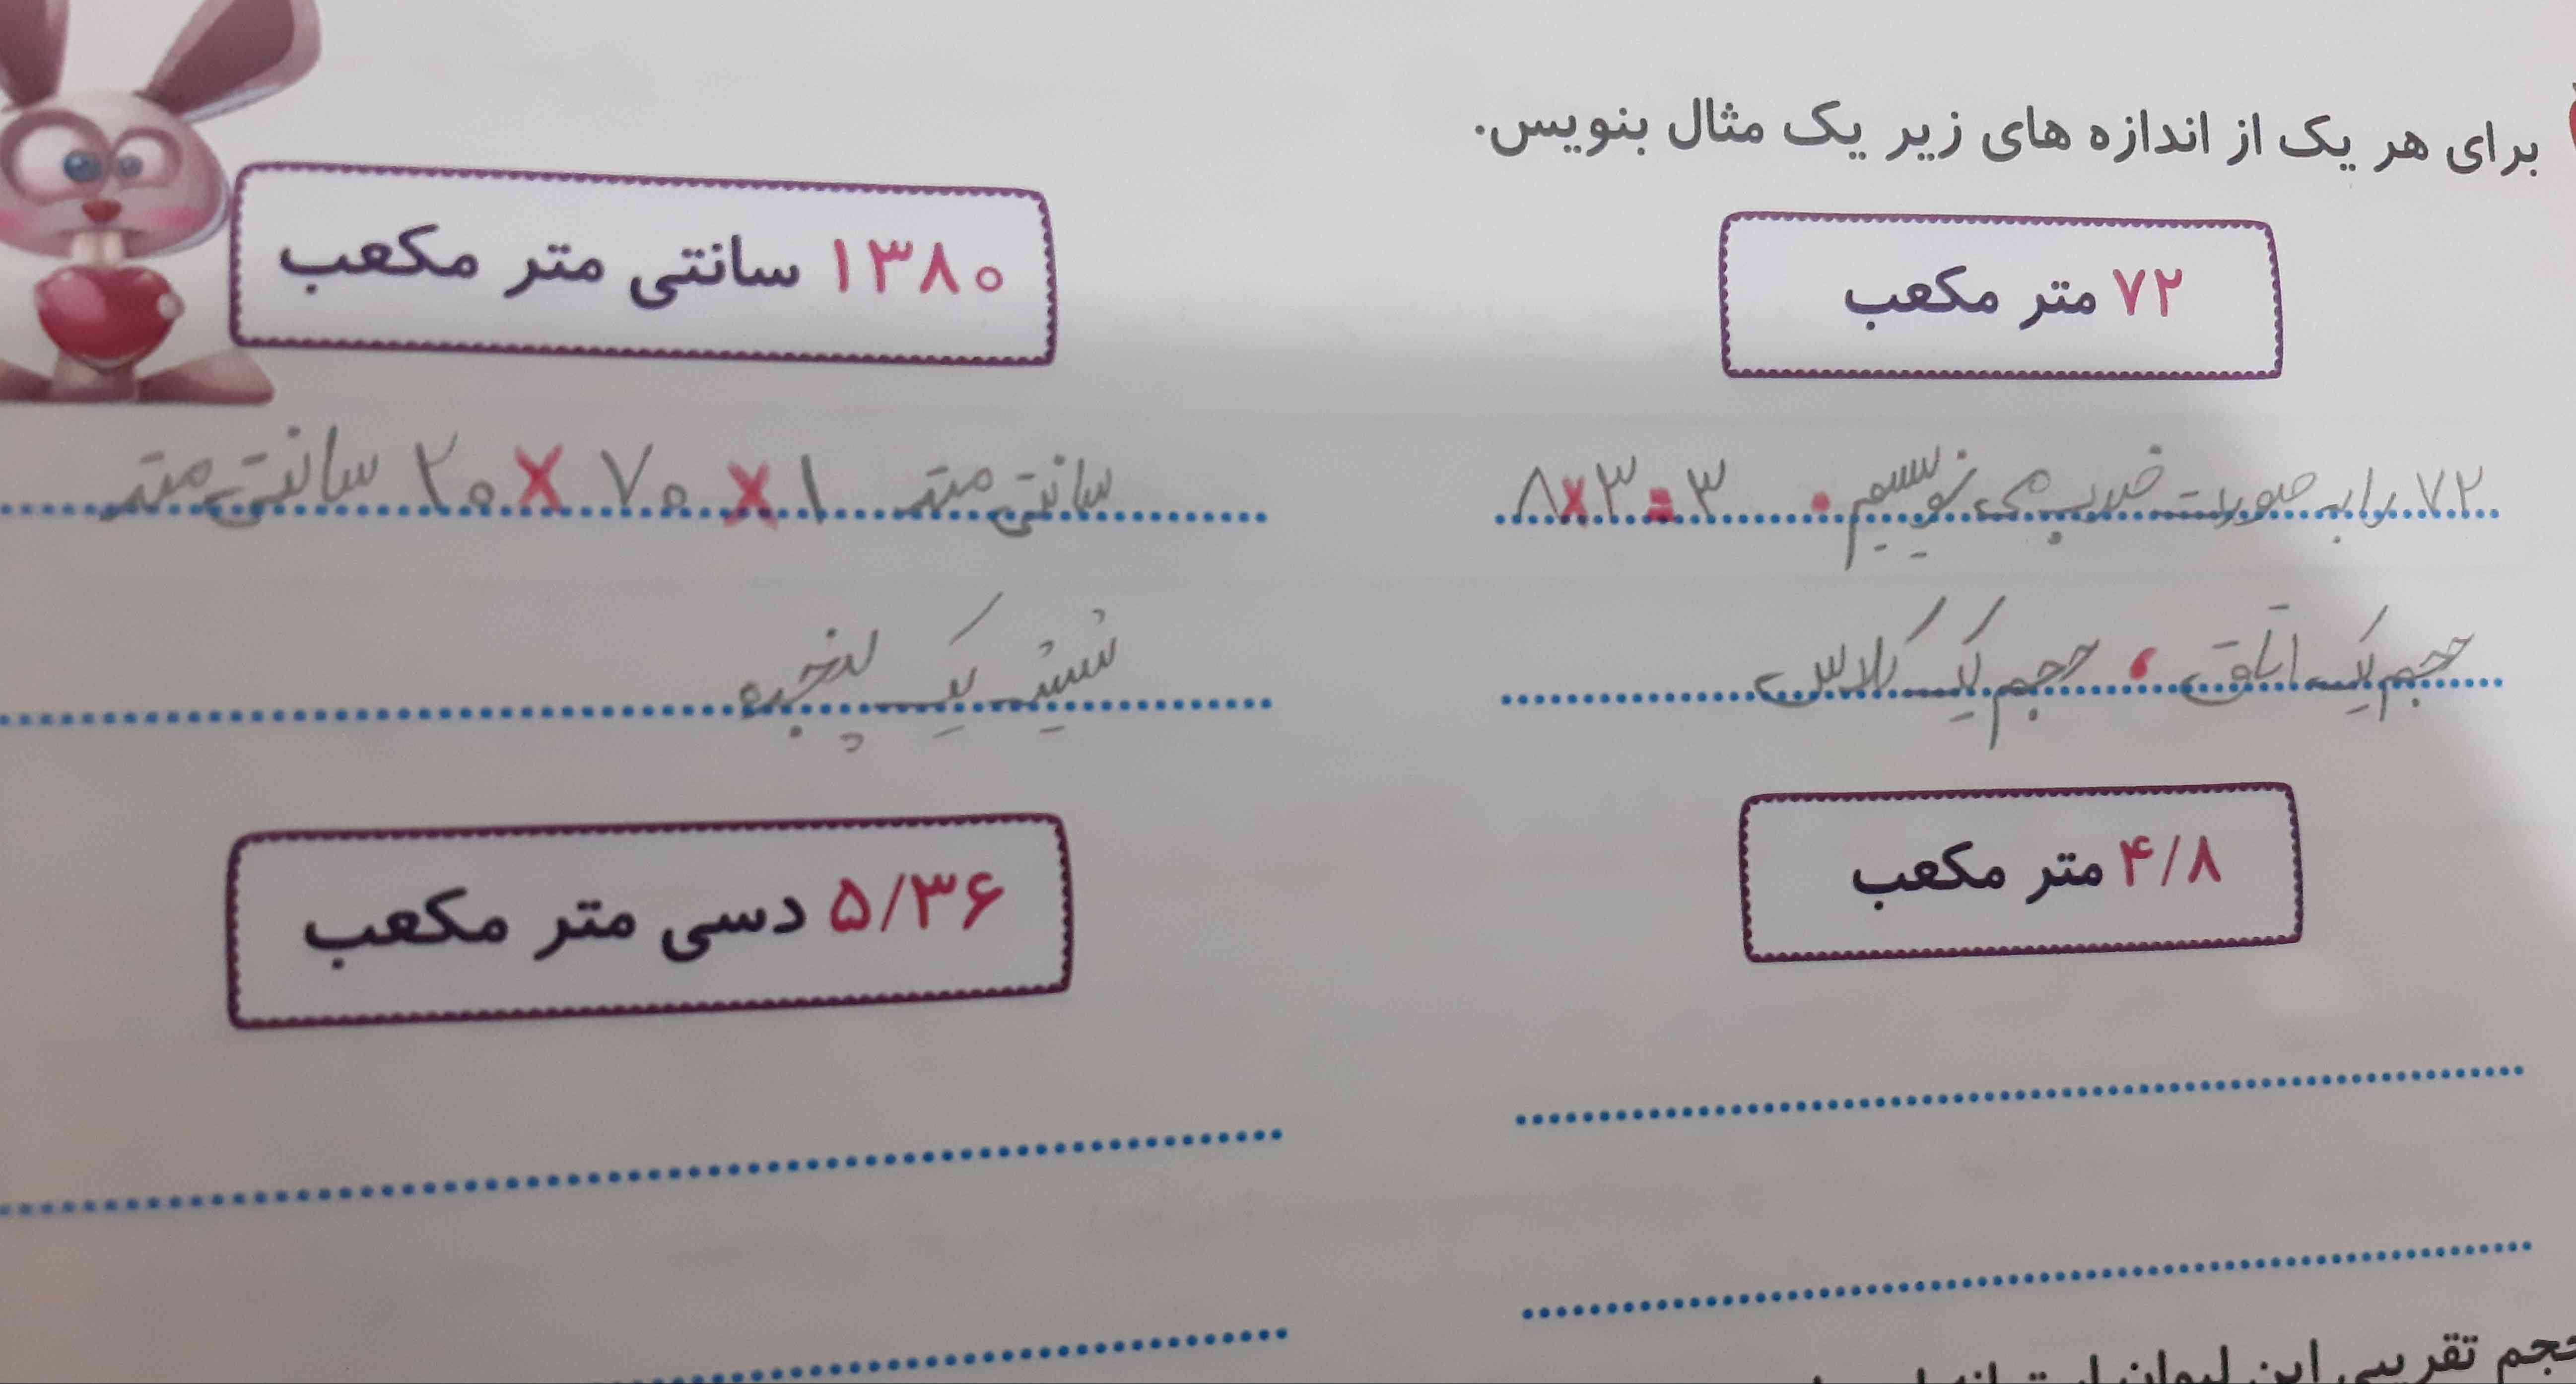 برای هر یک از اندازه های زیر یک مثال بنویس.
۷۲ متر مکعب
۷۲ را به صورت ضرب می نویسیم. ۳ = ۳ × ۸
حجم یک اتاق، حجم یک کلاس
۱۳۸۰ سانتی متر مکعب
سانتی متر ۱ × ۷۰ × ۲۰ سانتی متر
یک پنجره
۴/۸ متر مکعب
۵/۳۶ دسی متر مکعب
حجم تقریبی این لیوان